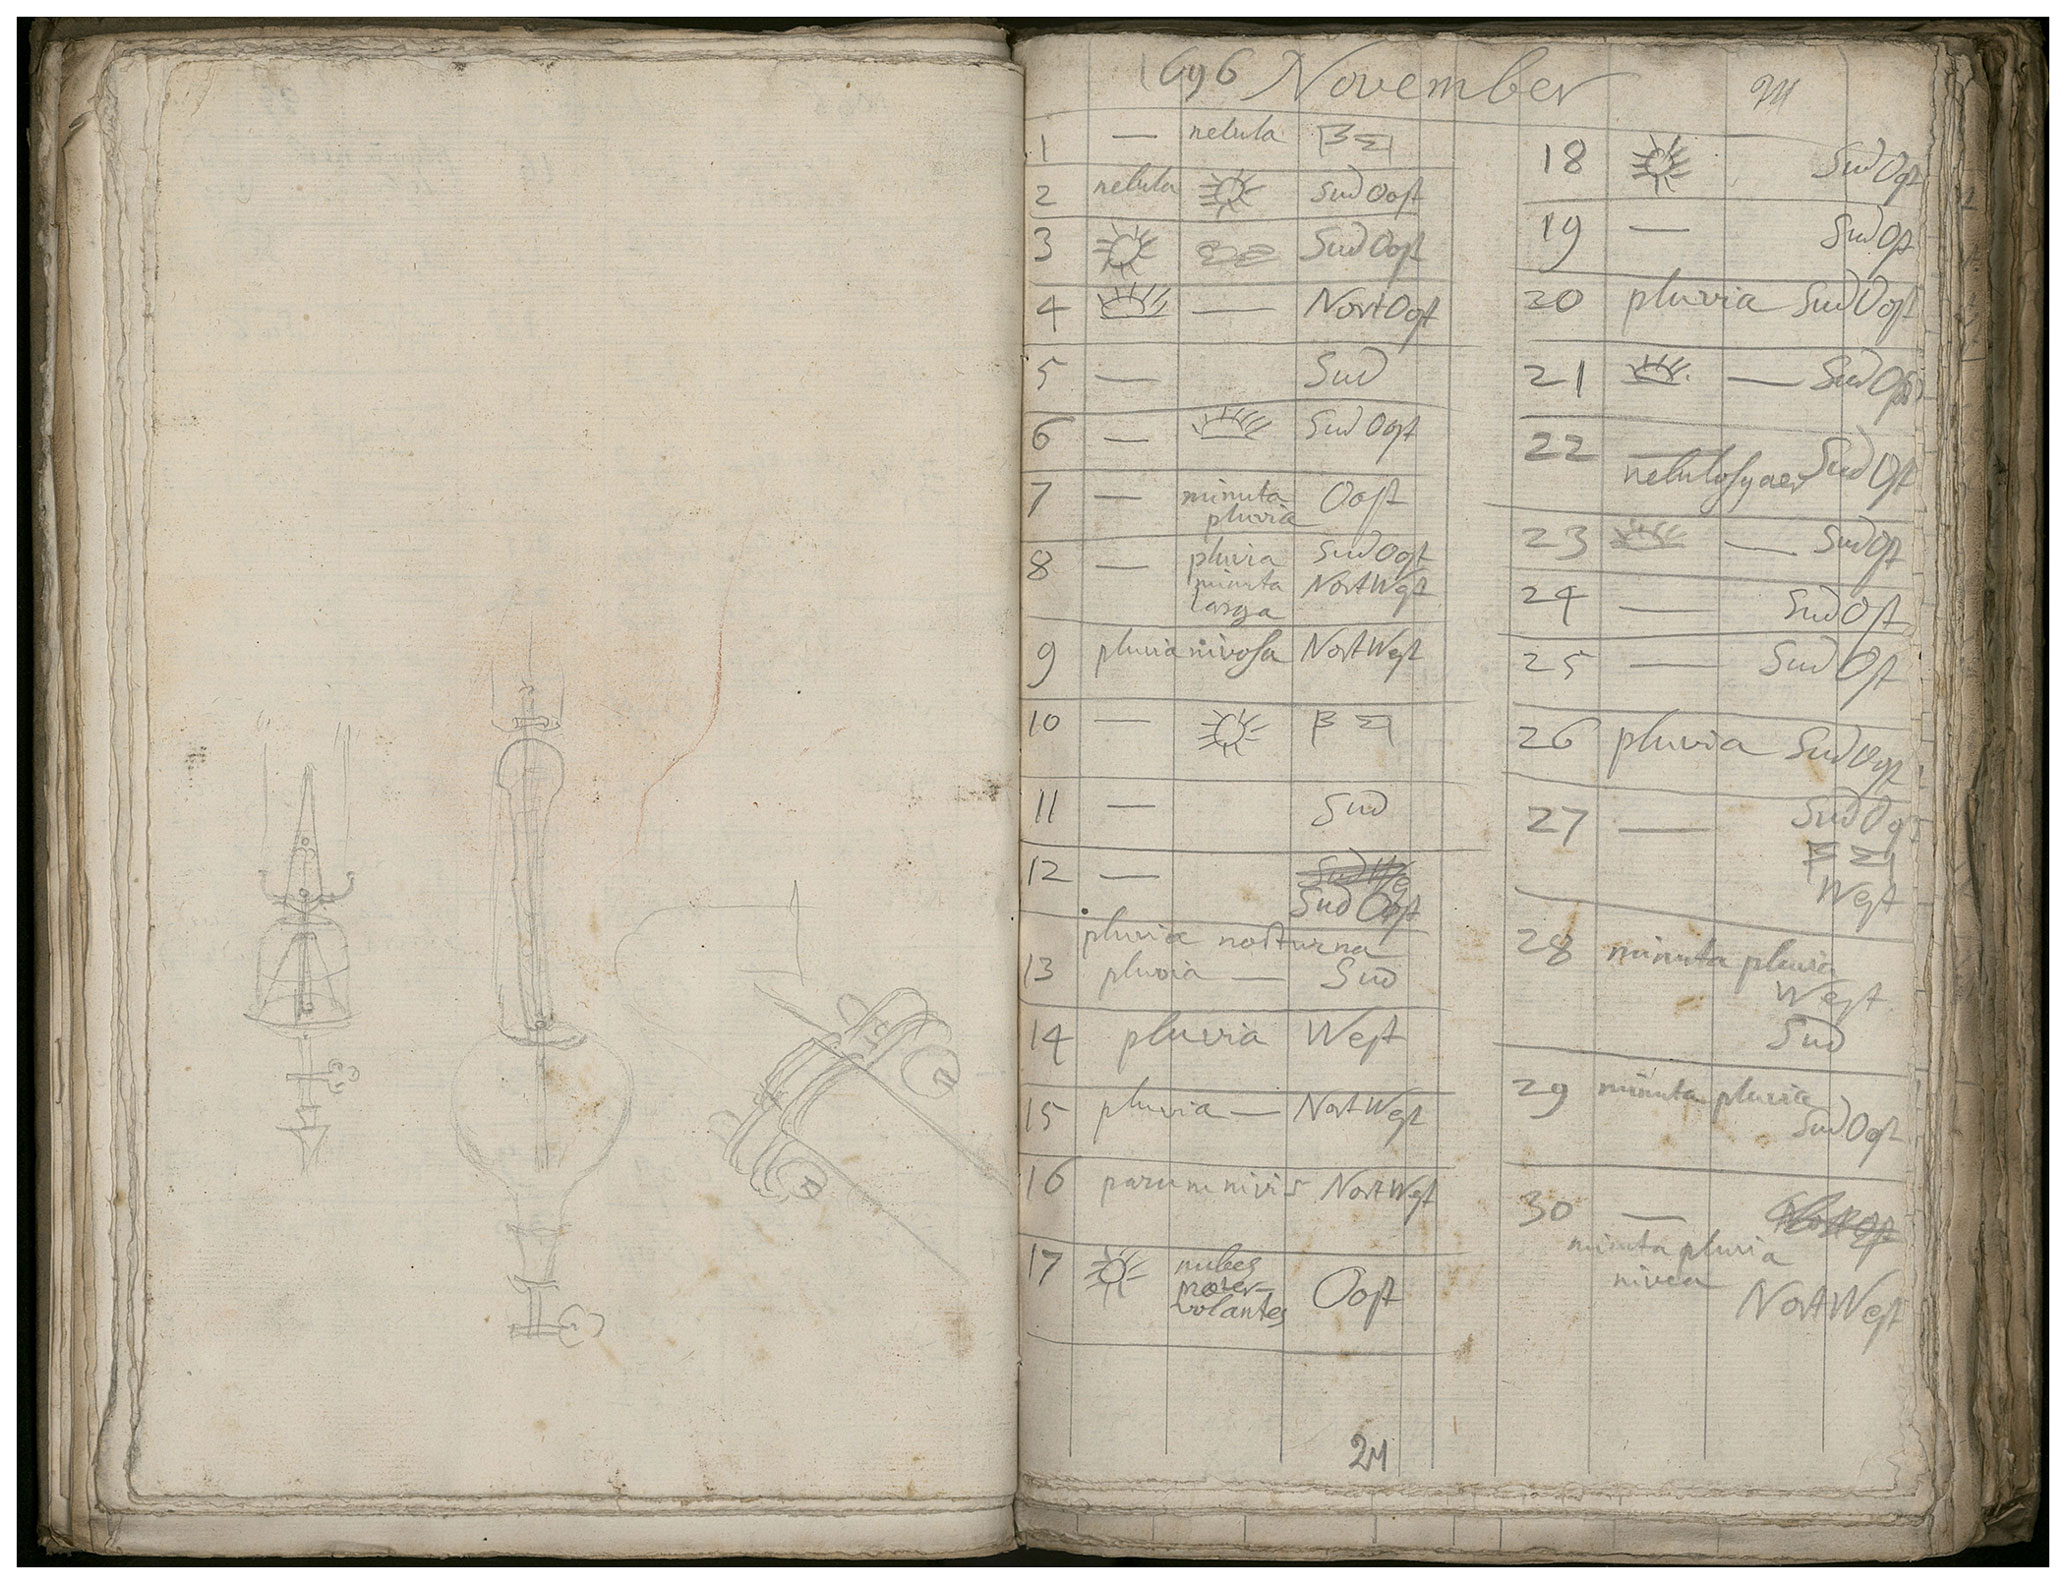 1696 November
1 — nebula
2 nebula Sud Oost
3 Sud Oost
4 — Nort Oost
5 — Sud
6 — Sud Oost
7 — minuta Oost
pluvia
8 — pluvia Sud Oost
minuta Nort West
larga
9 pluvia nivosa Nort West
10 —
11 — Sud
12 — Sud We
Sud Oost
pluvia nocturna
13 pluvia — Sud
14 pluvia West
15 pluvia — Nort West
16 parum nivis Nort West
17 nubes Oost
præter-
volantes
18 Sud Ost
19 — Sud Ost
20 pluvia Sud Oost
21 — Sud Ost
22 — Sud Ost
nebulosq aer
23 — Sud Ost
24 — Sud Ost
25 — Sud Ost
26 pluvia Sud Oost
27 — Sud Oost
West
28 minuta pluvia
West
Sud
29 minuta pluvia
Sud Oost
30 —
minuta pluvia
nivea Nort West
24